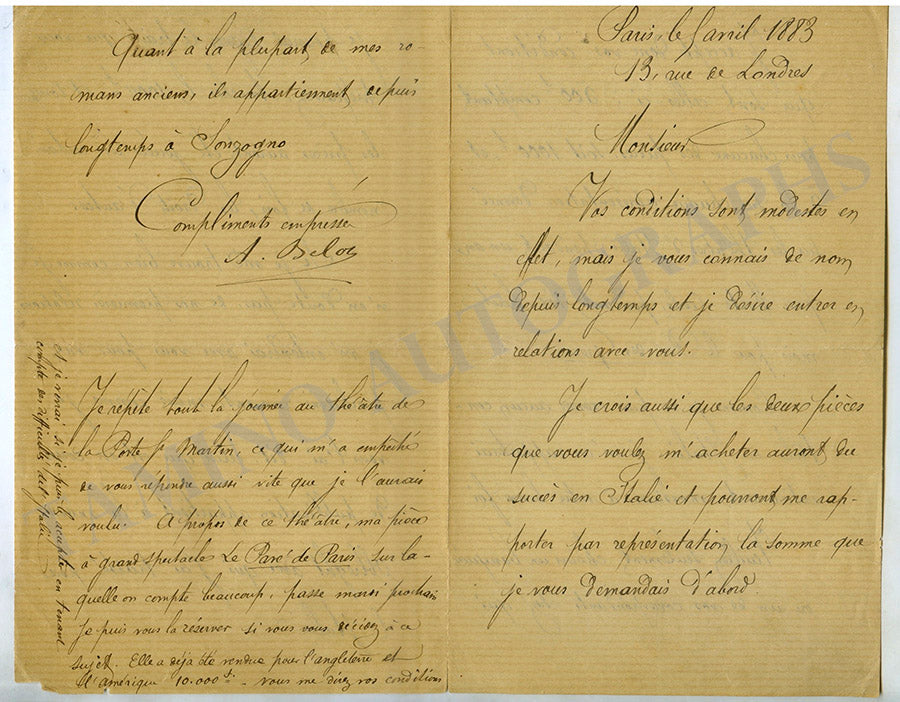 Paris, le 5 avril 1883
13, rue de Londres
Monsieur
Vos conditions sont modestes en
effet, mais je vous connais de nom
depuis longtemps et je désire entrer en
relations avec vous.
Je crois aussi que les deux pièces
que vous voulez m'acheter auront du
succès en Italie et pourront me rap-
porter par représentation la somme que
je vous demandais d'abord
Quant à la plupart de mes ro-
mans anciens, ils appartiennent depuis
longtemps à Sonzogno
Compliments empressés
A. Belot
Je répète tout la journée au théâtre de
la Porte St Martin, ce qui m'a empêché
de vous répondre aussi vite que je l'aurais
voulu. A propos de ce théâtre, ma pièce
à grand spectacle Le Pavé de Paris sur la-
quelle on compte beaucoup, passe mardi prochain
Je puis vous la réserver si vous vous décidez à ce
sujet. Elle a déjà été vendue pour l'angleterre et
l'amérique 10.000 f. - vous me direz vos conditions
et je verrai si je puis les accepter en tenant
compte des difficultés de l'Italie
TAMINO AUTOGRAPHS